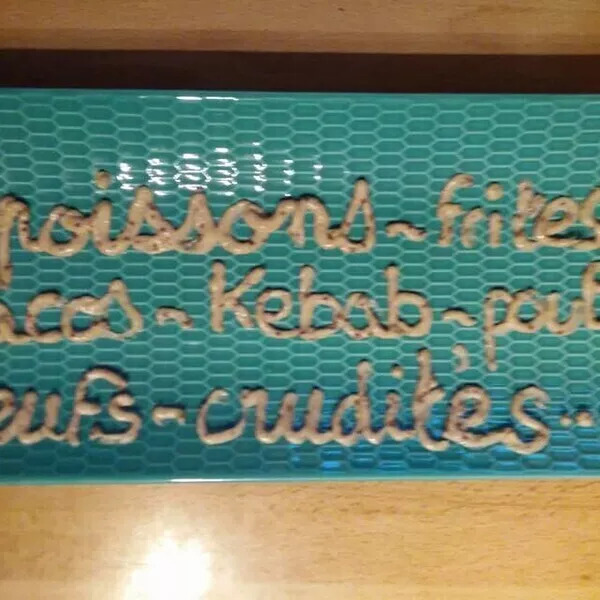 poissons ~ frites
acos ~ Kebab ~ poul
eufs ~ crudités...